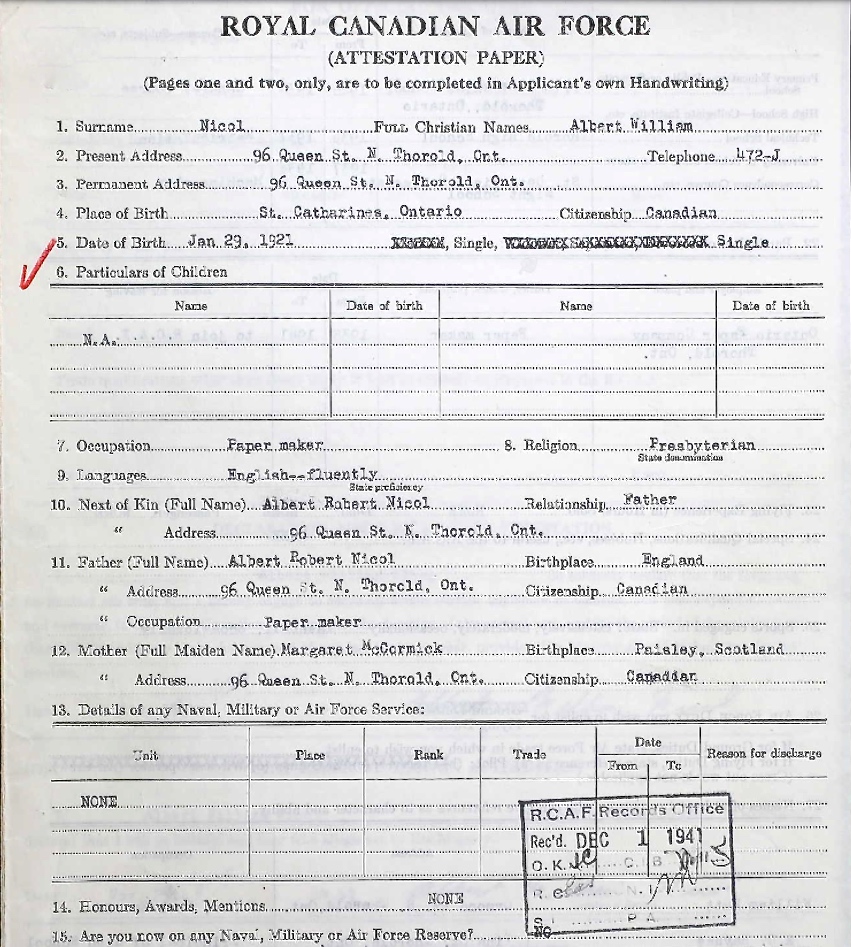 ROYAL CANADIAN AIR FORCE
(ATTESTATION PAPER)
(Pages one and two, only, are to be completed in Applicant's own Handwriting)
1. Surname Nicol FULL Christian Names Albert William
2. Present Address 96 Queen St. N. Thorold, Ont. Telephone 472-J
3. Permanent Address 96 Queen St. N. Thorold, Ont.
4. Place of Birth St. Catharines, Ontario Citizenship Canadian
5. Date of Birth Jan 29, 1921 , Single, Single
6. Particulars of Children
Name Date of birth Name Date of birth
N.A.
7. Occupation Paper maker 8. Religion Presbyterian
State denomination
9. Languages English--fluently
State proficiency
10. Next of Kin (Full Name) Albert Robert Nicol Relationship Father
" Address 96 Queen St. N. Thorold, Ont.
11. Father (Full Name) Albert Robert Nicol Birthplace England
" Address 96 Queen St. N. Thorold, Ont. Citizenship Canadian
" Occupation Paper maker
12. Mother (Full Maiden Name) Margaret McCormick Birthplace Paisley, Scotland
" Address 96 Queen St. N. Thorold, Ont. Citizenship Canadian
13. Details of any Naval, Military or Air Force Service:
Unit Place Rank Trade Date Reason for discharge
From To
NONE
R.C.A.F. Records Office
Rec'd. DEC 1 1941
O.K. C.I.B
R. N.
S. P A
14. Honours, Awards, Mentions NONE
15. Are you now on any Naval, Military or Air Force Reserve? NO